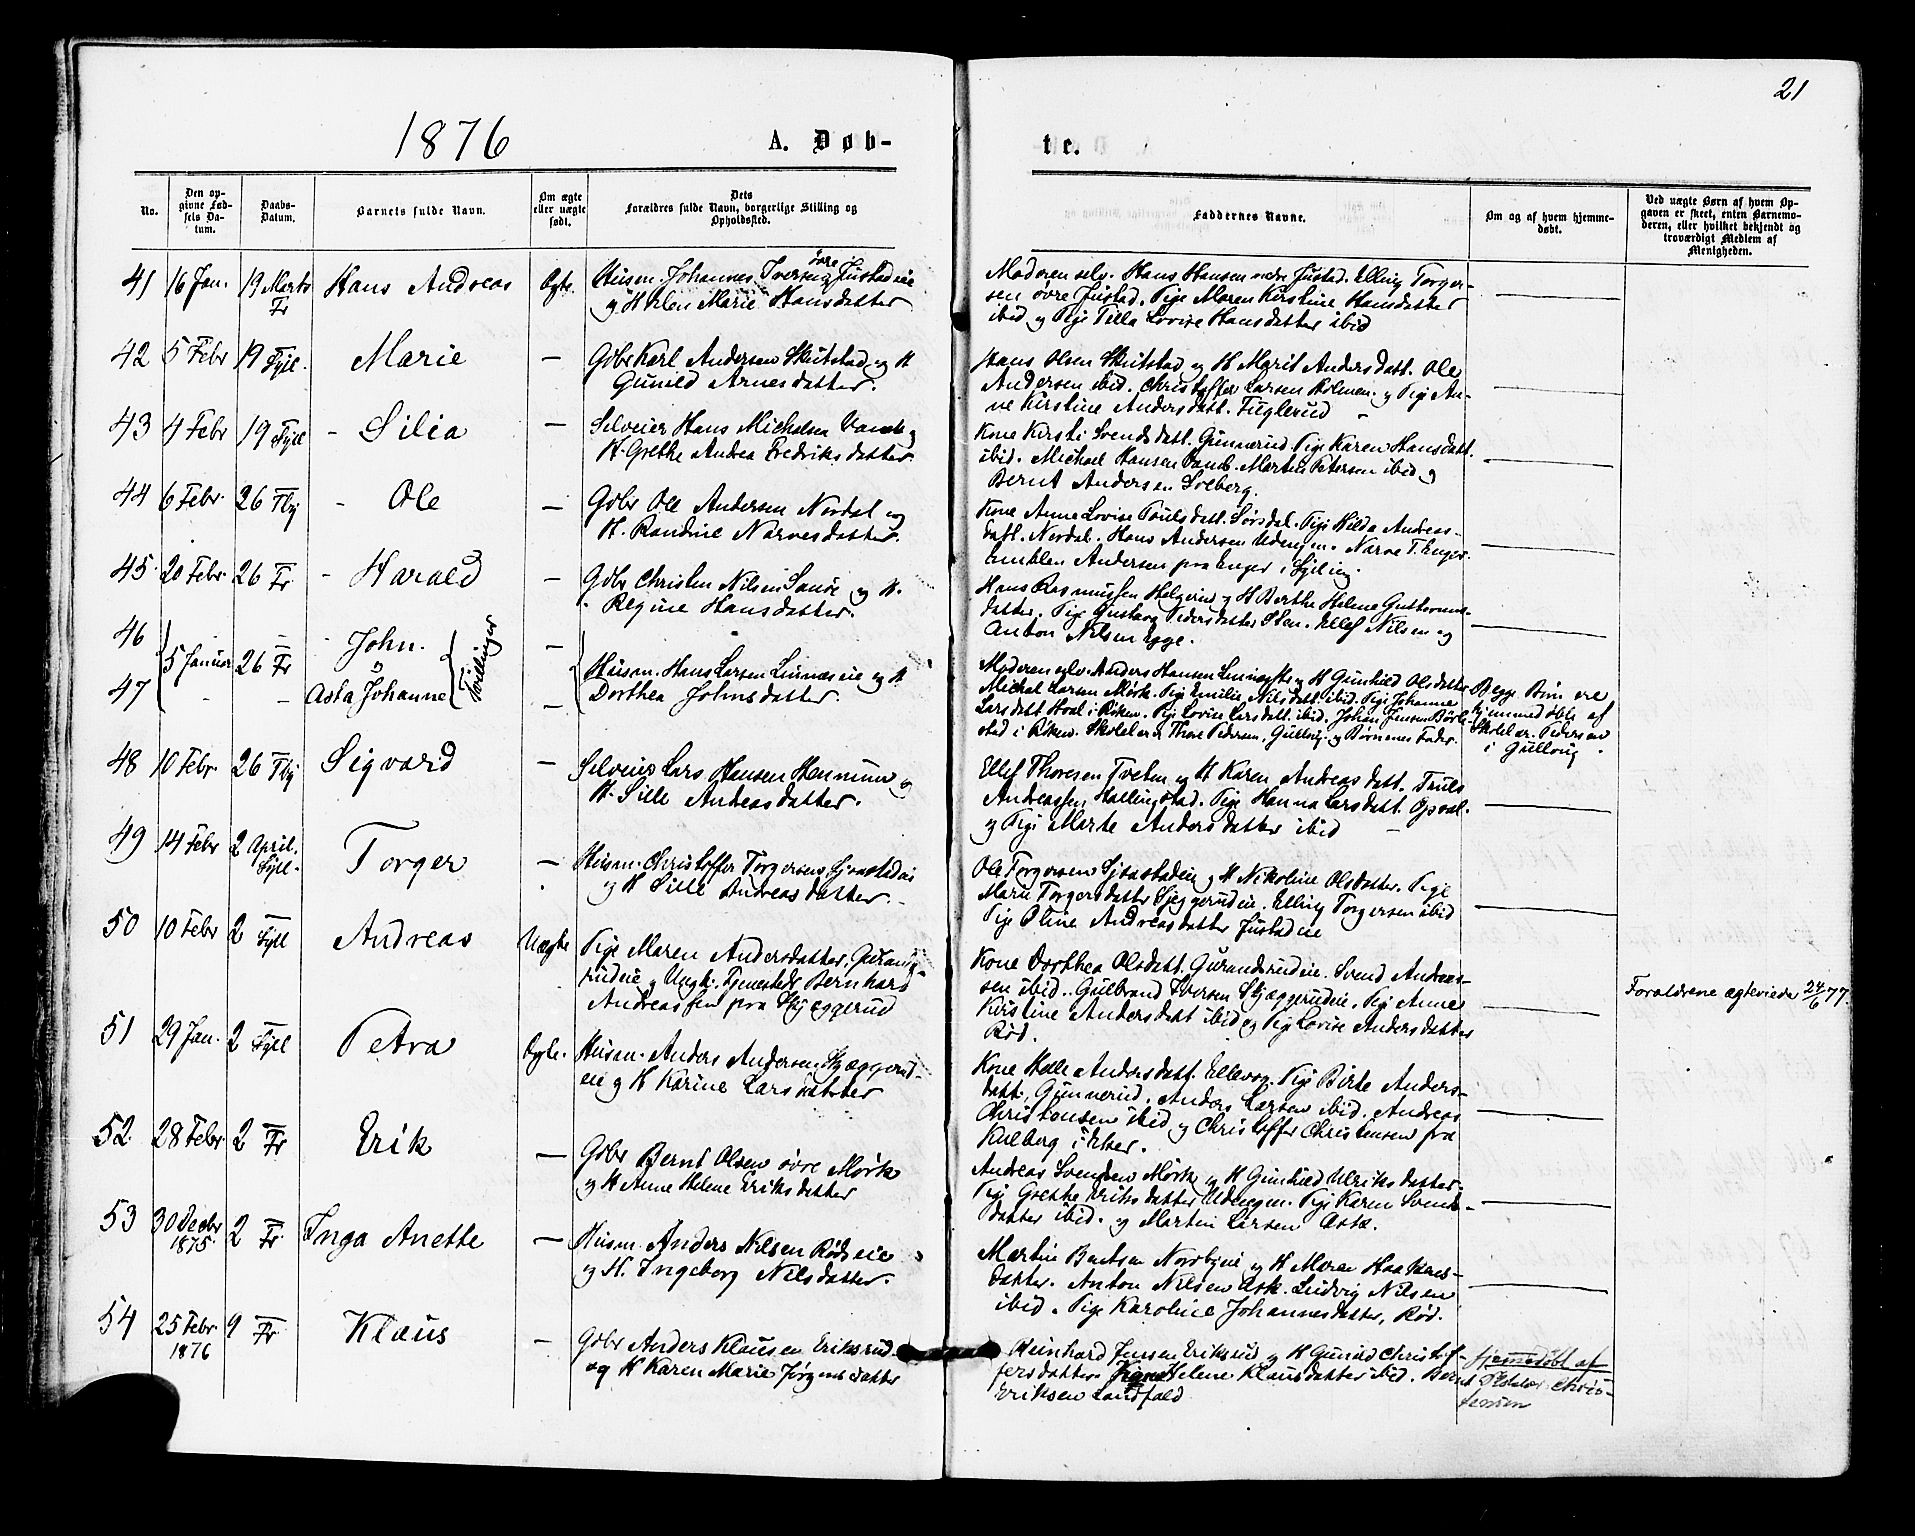 21
1876
A. Døb-
te.
No.
Den op-
givne Fød-
sels Da-
tum.
Daabs-
Datum.
Barnets fulde Navn.
Om ægte
eller uægte
født.
Dets
Forældres fulde Navn, borgerlige Stilling og
Opholdssted.
Faddernes Navne.
Om og af hvem hjemme-
døbt.
Ved uægte Børn af hvem Op-
gaven er skeet, enten Barnemo-
deren, eller hvilket bekjendt og
troværdigt Medlem af
Menigheden.
41 16 Jan. 19 Marts Fr Hans Andreas Ægte.
Husm. Johannes Iversen øvre Justadeie
og H Helen Marie Hansdatter
Moderen selv. Hans Hansen nedre Justad. Elling Torger-
sen øvre Justad. Pige Maren Kirstine Hansdatter
ibid og Pige Tilla Lovise Hansdatter ibid
42 5 Febr 19 Syll. Marie —
Gdbr Karl Andersen Skutstad og H
Gunild Arnesdatter.
Hans Olsen Skutstad og H Marit Andersdatt. Ole
Andersen ibid. Christoffer Larsen Holmen. og Pige An-
ne Kirstine Andersdatt. Fuglerud
43 4 Febr 19 Syll - Silia —
Selveier Hans Michelsen og
H. Grethe Andrea Fredriksdatter
Kone Kirsti Svendsdatt. Gunnerud. Pige Karen Hansdatt.
ibid. Michael Hansen Martin Petersen ibid og
Bernt Andersen Solberg.
44 6 Febr. 26 Tby - Ole —
Gdbr Ole Andersen Nordal og
H. Randine Narvesdatter.
Kone Anne Lovise Poulsdatt. Sørsdal. Pige Hilda Andreas-
datt. Nordal. Hans Andersen Narve T. Enger.
Andersen fra Enger i Sylling.
45. 20 Febr. 26 Fr - Harald —
Gdbr Christen Nilsen og H.
Regine Hansdatter.
Hans Rasmussen Helgerud og H Berthe Helene Guttorms-
datter. Pige Gustava Pedersdatter Sten. Ellef Nilsen og
Anton Nilsen Egge.
46 5 Januar 26 Fr - John. —
47 - - Asta Johanne — Tvillinger
Husm. Hans Larsen Linnæseie og H
Dorthea Johnsdatter.
Moderen selv. Anders Hansen og H Gunhild Olsdatter
Michal Larsen Mørk. Pige Emilie Nilsdatt. ibid. Pige Johanne
Larsdatt Hval i Røken. Pige Lovise Larsdatt. ibid. Johan Jensen
i Røken. Skolelærer Thore Pedersen, Gullaug. og Børnenes Fader.
Begge Børn ere
hjemmedøbte af
Skolelær. Pedersen
i Gullaug.
48 10 Febr. 26 Tby Sigvard —
Selveier Lars Hansen Hennum og
H. Sille Andreasdatter.
Ellef Thoresen Tveten og H Karen Andreasdatt. Truls
Andreassen Hallingstad. Pige Hanna Larsdatt. Opsal.
og Pige Marte Andersdatter ibid
49 14 Febr 2 April. Syll. Torger —
Husm. Christoffer Torgersen Sjaastadeie
og H Sille Andreasdatter.
Ole Torgersen Sjaastadeie og H Nikoline Olsdatter. Pige
Maren Torgersdatter Skjeggerudeie. Elling Torgersen ibid
Pige Oline Andreasdatter Justadeie
50 10 Febr 2 Syll Andreas Uægte
Pige Maren Andersdatter, Gurands-
rudeie og Ungk. Tjenestedr Bernhard
Andreassen fra Skjæggerud
Kone Dorthea Olsdatt. Gurandsrudeie. Svend Andreas-
sen ibid.. Gulbrand Iversen Skjæggerudeie. Pige Anne
Kirstine Andersdatt ibid og Pige Lovise Andersdatter
Rød.
Forældrene ægteviede 24/6 77.
51 29 Jan. 2 Syll Petra Ægte.
Husm. Anders Andersen Skjæggerud-
eie og H Karine Larsdatter
Kone Helle Andersdatt. Pige Birte Anders-
datt. Gunnerud. Anders Larsen ibid. Andreas
Christensen ibid og Christoffer Christensen fra
Kulberg i Eker.
52. 28 Febr. 2 Fr Erik —
Gdbr Bernt Olsen øvre Mørk
og H Anne Helene Eriksdatter
Andreas Svendsen Mørk og H Gunhild Ulriksdatter.
Pige Grethe Eriksdatter Pige Karen Svends-
datter ibid. og Martin Larsen Ask.
53 30 Decbr 1875. 2 Fr. Inga Anette —
Husm. Anders Nilsen Rødseie
og H. Ingeborg Nilsdatter.
Martin Berntsen Nordbyeie og H Maren Haakens-
datter. Anton Nilsen Ask. Ludvig Nilsen
ibid. Pige Karoline Johannesdatter, Rød.
54 25 Febr. 1876 9 Fr Klaus —
Gdbr Anders Klausen Eriksrud
og H Karen Marie Jørgensdatter
Reinhard Jensen Eriksrud og H Gunild Christof-
fersdatter. Helene Klausdatter ibid. Bernt
Eriksen Landfald
Hjemmedøbt af
Chris-
tensen